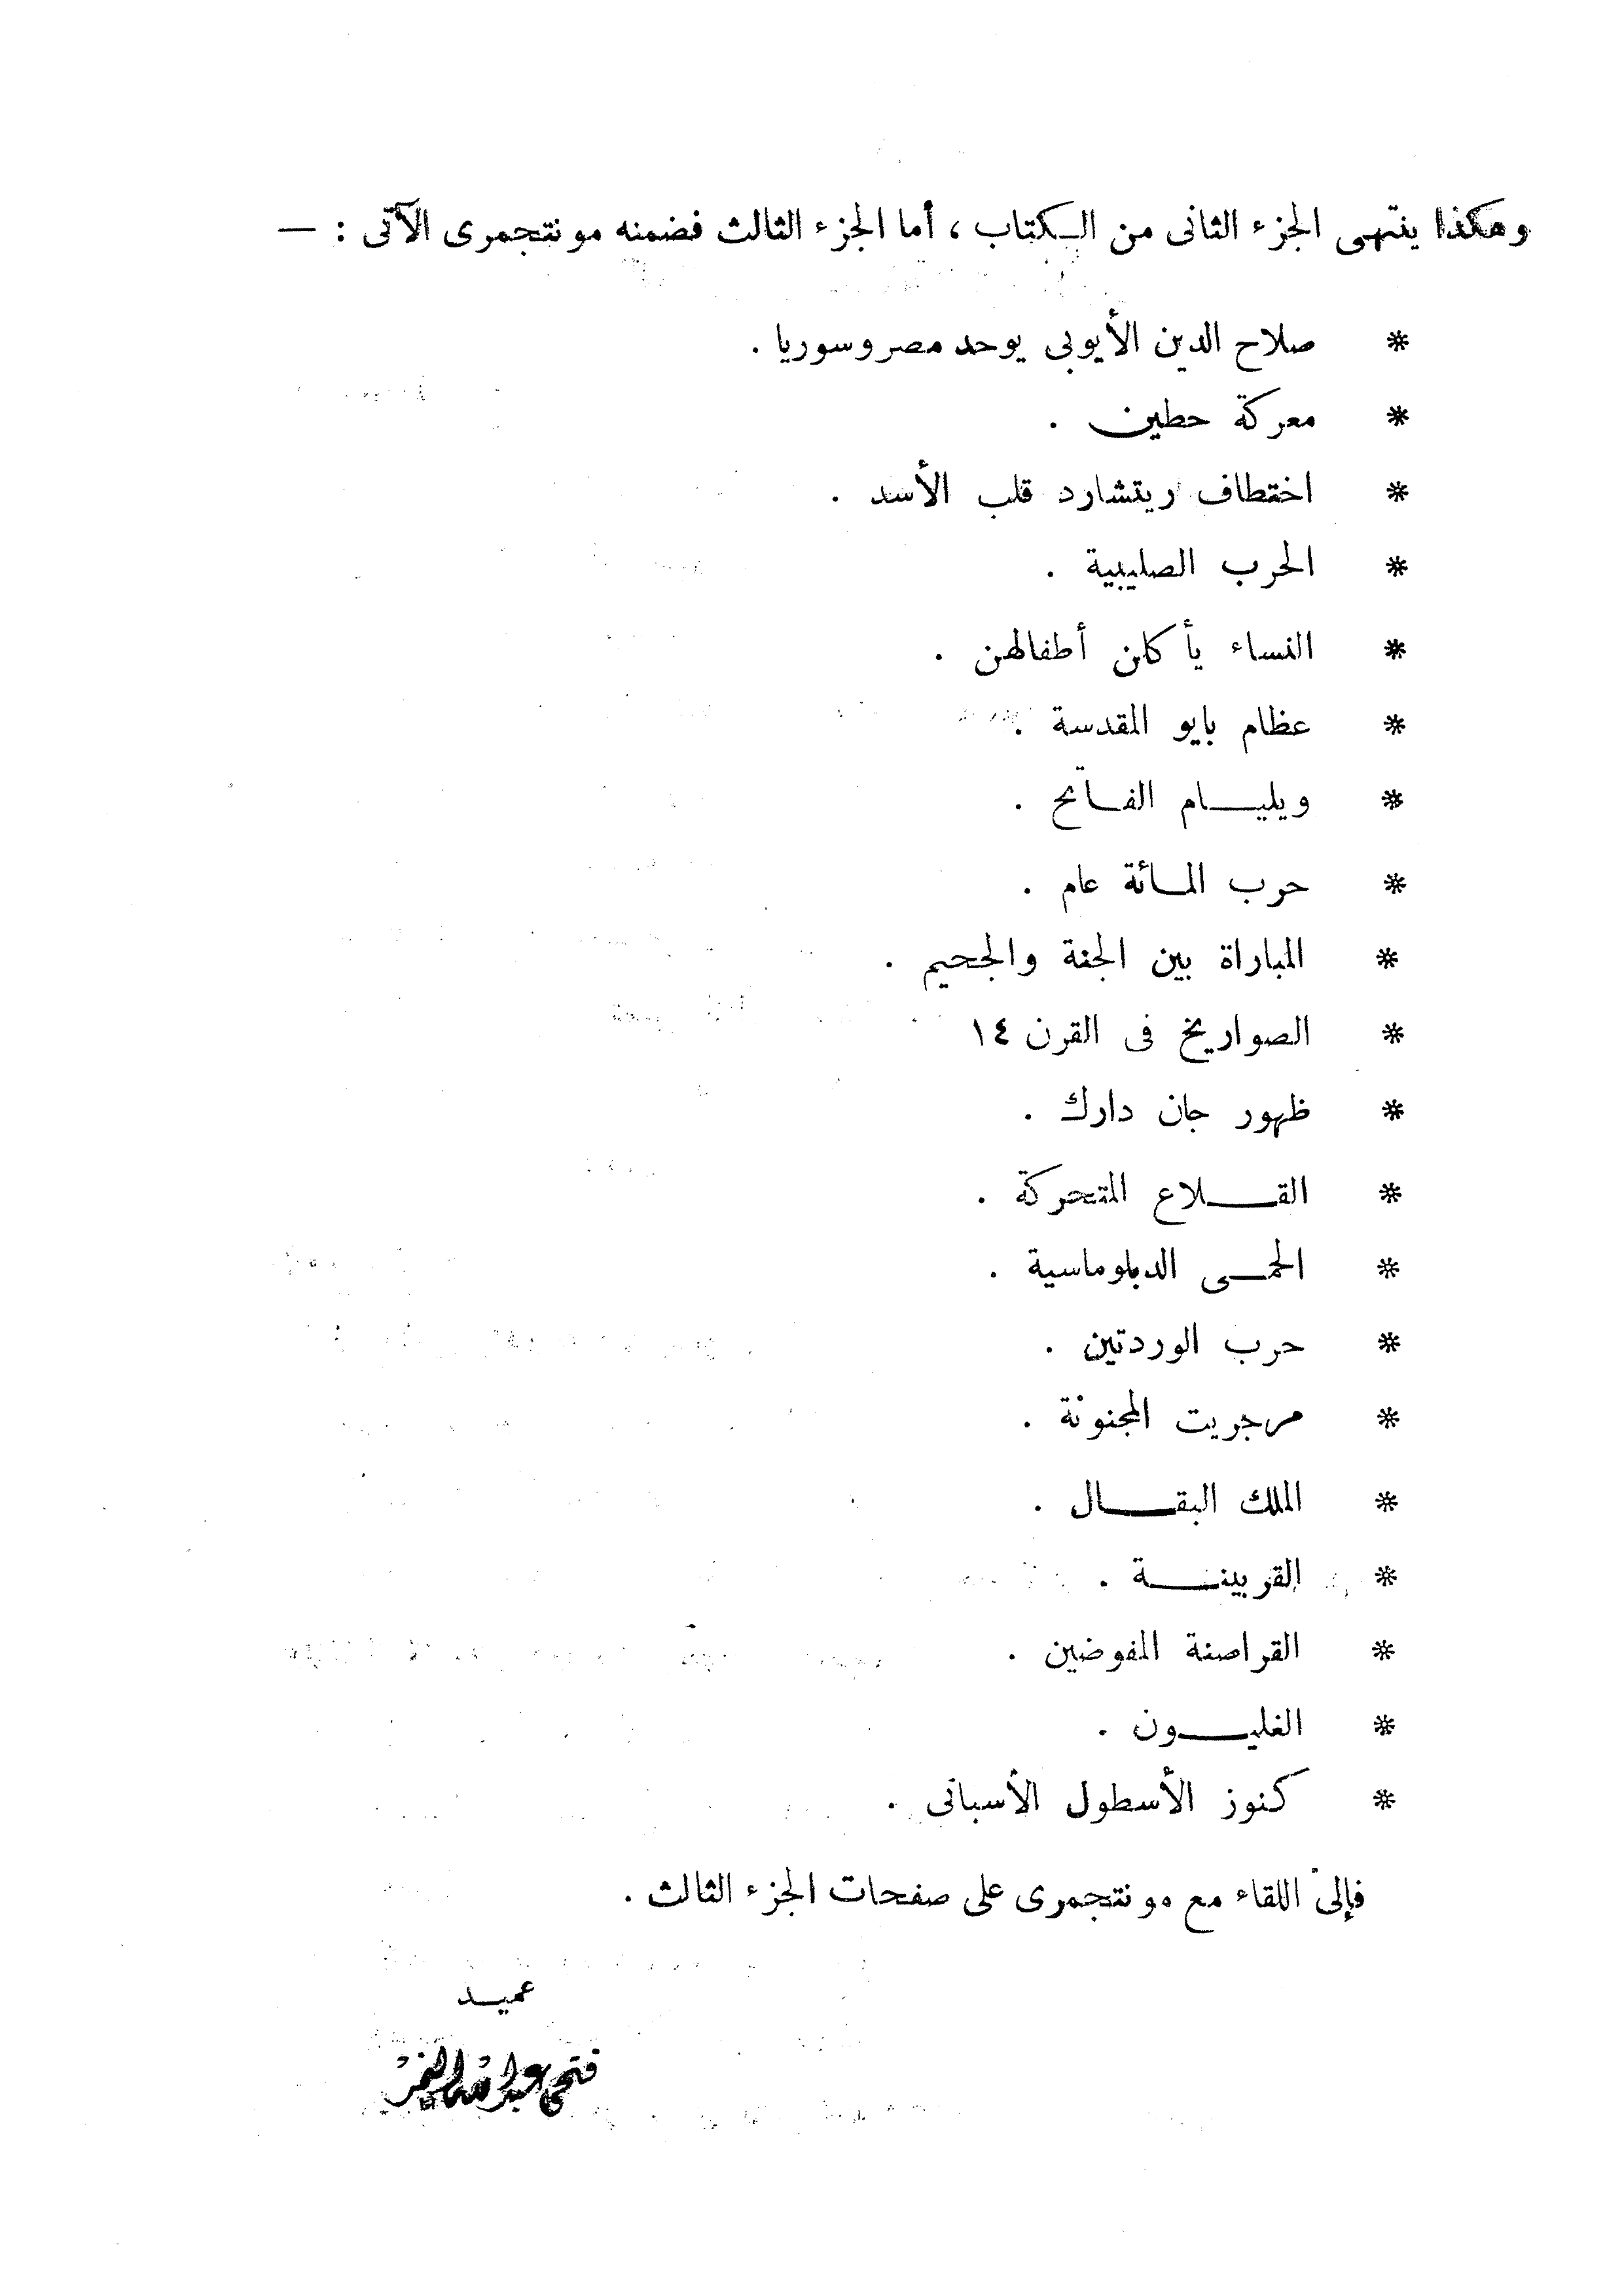 وهكذا ينتهى الجزء الثانى من الكتاب ، أما الجزء الثالث فضمنه مونتجمرى الآتى : —
* صلاح الدين الأيوبى يوحد مصر وسوريا .
* معركة حطين .
* اختطاف ريتشارد قلب الأسد .
* الحرب الصليبية .
* النساء يأكلن أطفالهن .
* عظام بايو المقدسة .
* ويليام الفاتح .
* حرب المائة عام .
* المباراة بين الجنة والجحيم .
* الصواريخ فى القرن ١٤
* ظهور جان دارك .
* القلاع المتحركة .
* الحمى الدبلوماسية .
* حرب الوردتين .
* مرجريت المجنونة .
* الملك البقال .
* القربينة .
* القراصنة المفوضين .
* الغليون .
* كنوز الأسطول الأسبانى .
فإلى اللقاء مع مونتجمرى على صفحات الجزء الثالث .
عميد
فتحى عبد الله النمر